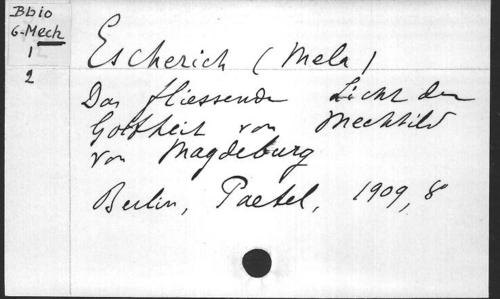 Bbio
G-Mech
1
2
Escherich (Mela)
Das fliessende Licht der
Gottheit von Mechtild
von Magdeburg
Berlin, Paetel, 1909, 8